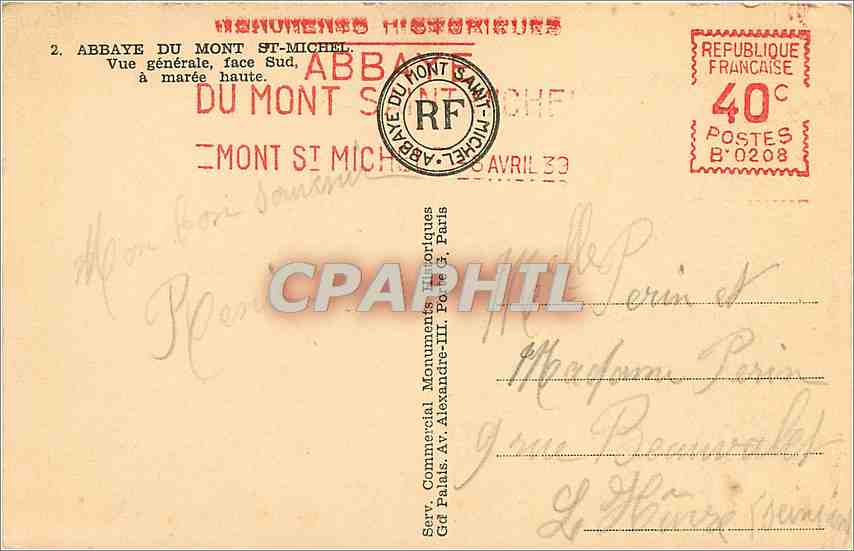 MONUMENTS HISTORIQUES
ABBAYE
DU MONT SAINT-MICHEL
MONT ST MICHEL AVRIL 39
2. ABBAYE DU MONT ST-MICHEL.
Vue générale, face Sud,
à marée haute.
ABBAYE DU MONT SAINT-MICHEL
RF
REPUBLIQUE
FRANCAISE
40c
POSTES
B•0208
Mon bon souvenir
CPAPHIL
Serv. Commercial Monuments Historiques
Gd Palais. Av. Alexandre-III. Porte G, Paris
Melle Perin et
Madame Perin
9 rue
Le Hâvre